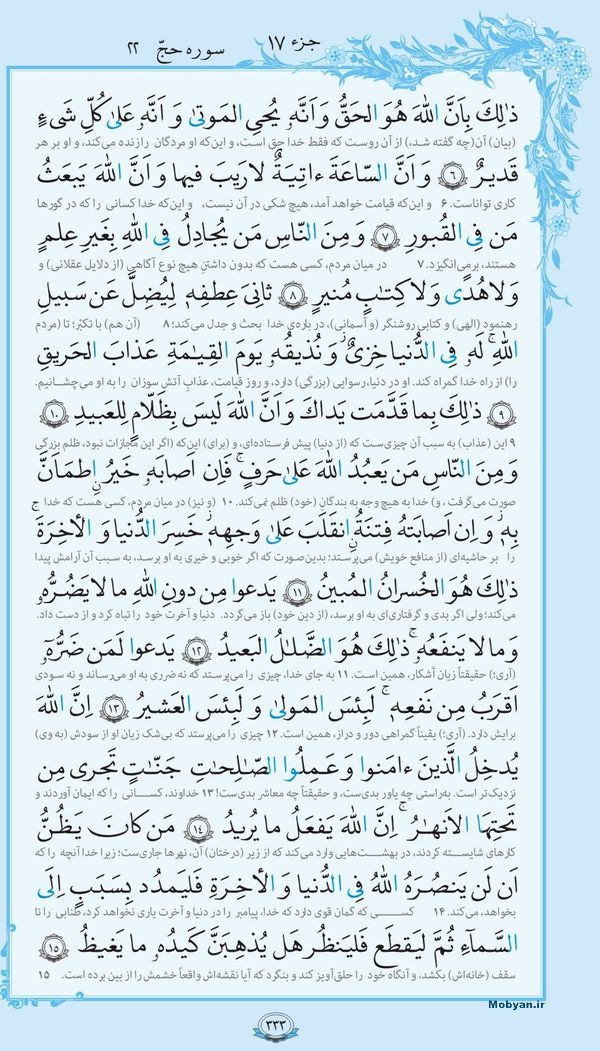 جزء ۱۷
سوره حجّ ۲۲
ذٰلِكَ بِاَنَّ اللّٰهَ هُوَ الحَقُّ وَ اَنَّهٗ يُحيِى المَوتىٰ وَ اَنَّهٗ عَلىٰ كُلِّ شَىءٍ
(بیان) آن(چه گفته شد،) از آن روست که فقط خدا حق است، و این‌که او مردگان را زنده می‌کند، و او بر هر
قَديرٌ ۶ وَ اَنَّ السّاعَةَ ءاتِيَةٌ لا رَيبَ فيها وَ اَنَّ اللّٰهَ يَبعَثُ
کاری تواناست. ۶ و این‌که قیامت خواهد آمد، هیچ شکی در آن نیست، و این‌که خدا کسانی را که در گورها
مَن فِى القُبورِ ۷ وَ مِنَ النّاسِ مَن يُجادِلُ فِى اللّٰهِ بِغَيرِ عِلمٍ
هستند، برمی‌انگیزد. ۷ در میان مردم، کسی هست که بدون داشتن هیچ نوع آگاهی (از دلایل عقلانی) و
وَ لا هُدًى وَ لا كِتٰبٍ مُنيرٍ ۸ ثانِىَ عِطفِهٖ لِيُضِلَّ عَن سَبيلِ
رهنمود (الهی) و کتابی روشنگر (و آسمانی)، در باره‌ی خدا بحث و جدل می‌کند؛ ۸ (آن هم) با تکبّر؛ تا (مردم
اللّٰهِ ۚ لَهٗ فِى الدُّنيا خِزىٌ ۖ وَ نُذيقُهٗ يَومَ القِيٰمَةِ عَذابَ الحَريقِ
را) از راه خدا گمراه کند. او در دنیا، رسوایی (بزرگی) دارد، و روز قیامت، عذاب آتش سوزان را به او می‌چشانیم.
۹ ذٰلِكَ بِما قَدَّمَت يَداكَ وَ اَنَّ اللّٰهَ لَيسَ بِظَلّامٍ لِلعَبيدِ ۱۰
۹ این (عذاب) به سبب آن چیزی‌ست که (از دنیا) پیش فرستاده‌ای، و (برای) این‌که (اگر این مجازات نبود، ظلم بزرگی
وَ مِنَ النّاسِ مَن يَعبُدُ اللّٰهَ عَلىٰ حَرفٍ ۖ فَاِن اَصابَهٗ خَيرٌ اطمَاَنَّ
صورت می‌گرفت، و) خدا به هیچ وجه به بندگان (خود) ظلم نمی‌کند. ۱۰ (و نیز) در میان مردم، کسی هست که خدا
بِهٖ ۖ وَ اِن اَصابَتهُ فِتنَةٌ انقَلَبَ عَلىٰ وَجهِهٖ خَسِرَ الدُّنيا وَ الأٰخِرَةَ ۚ
را بر حاشیه‌ای (از منافع خویش) می‌پرستد؛ بدین‌صورت که اگر خوبی و خیری به او برسد، به سبب آن آرامش پیدا
ذٰلِكَ هُوَ الخُسرانُ المُبينُ ۱۱ يَدعوا مِن دونِ اللّٰهِ ما لا يَضُرُّهٗ
می‌کند؛ ولی اگر بدی و گرفتاری‌ای به او برسد، (از دین خود) باز می‌گردد. دنیا و آخرت خود را تباه کرد و از دست داد.
وَ ما لا يَنفَعُهٗ ۚ ذٰلِكَ هُوَ الضَّلٰلُ البَعيدُ ۱۲ يَدعوا لَمَن ضَرُّهٗ
(آری؛) حقیقتاً زیان آشکار، همین است. ۱۱ به جای خدا، چیزی را می‌پرستد که نه ضرری به او می‌رساند و نه سودی
اَقرَبُ مِن نَفعِهٖ ۚ لَبِئسَ المَولىٰ وَ لَبِئسَ العَشيرُ ۱۳ اِنَّ اللّٰهَ
برایش دارد. (آری؛) یقیناً گمراهی دور و دراز، همین است. ۱۲ چیزی را می‌پرستد که بی‌شک زیان او از سودش (به وی)
يُدخِلُ الَّذينَ ءامَنوا وَ عَمِلُوا الصّٰلِحٰتِ جَنّٰتٍ تَجرى مِن
نزدیک‌تر است. به‌راستی چه یاور بدی‌ست، و حقیقتاً چه معاشر بدی‌ست! ۱۳ خداوند، کسـانی را که ایمان آوردند و
تَحتِهَا الاَنهٰرُ ۚ اِنَّ اللّٰهَ يَفعَلُ ما يُريدُ ۱۴ مَن كانَ يَظُنُّ
کارهای شایسته کردند، در بهشت‌هایی وارد می‌کند که از زیر (درختان) آن، نهرها جاری‌ست؛ زیرا خدا آنچه را که
اَن لَن يَنصُرَهُ اللّٰهُ فِى الدُّنيا وَ الأٰخِرَةِ فَليَمدُد بِسَبَبٍ اِلَى
بخواهد، می‌کند. ۱۴ کسـی که گمان قوی دارد که خدا، پیامبر را در دنیا و آخرت یاری نخواهد کرد، طنابی را تا
السَّماءِ ثُمَّ ليَقطَع فَليَنظُر هَل يُذهِبَنَّ كَيدُهٗ ما يَغيظُ ۱۵
سقف (خانه‌اش) بکشد، و آنگاه خود را حلق‌آویز کند و بنگرد که آیا نقشه‌اش واقعاً خشمش را از بین برده است. ۱۵
۳۳۳
Mobyan.ir